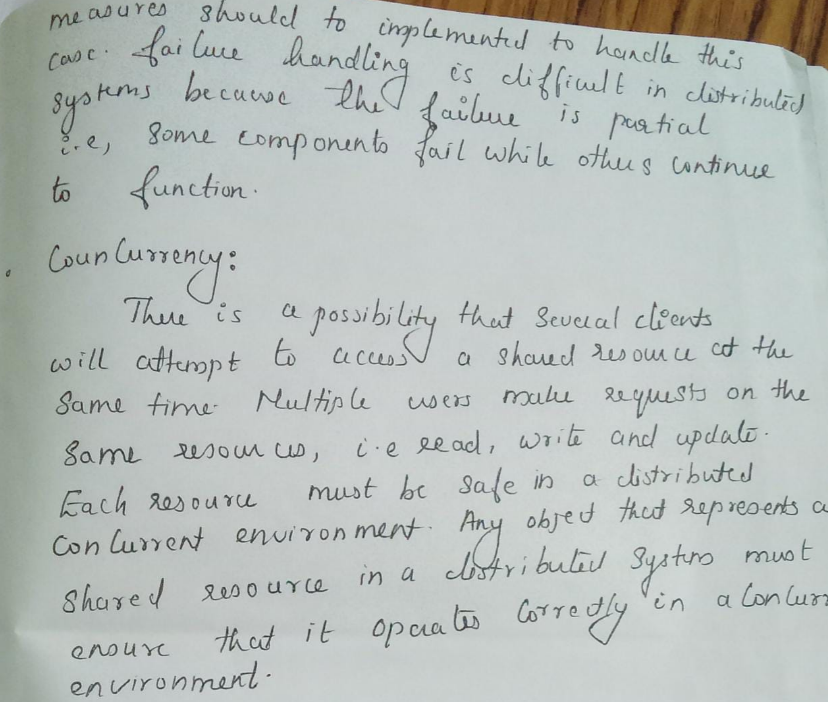 measures should to implemented to handle this
case. failure handling is difficult in distributed
systems because the failure is partial
i.e, some components fail while others continue
to function.
• CounCurrency:
There is a possibility that several clients
will attempt to access a shared resource at the
same time. Multiple users make requests on the
same resources, i.e read, write and update.
Each resource must be safe in a distributed
concurrent environment. Any object that represents a
shared resource in a distributed system must
ensure that it operates correctly in a concurr
environment.